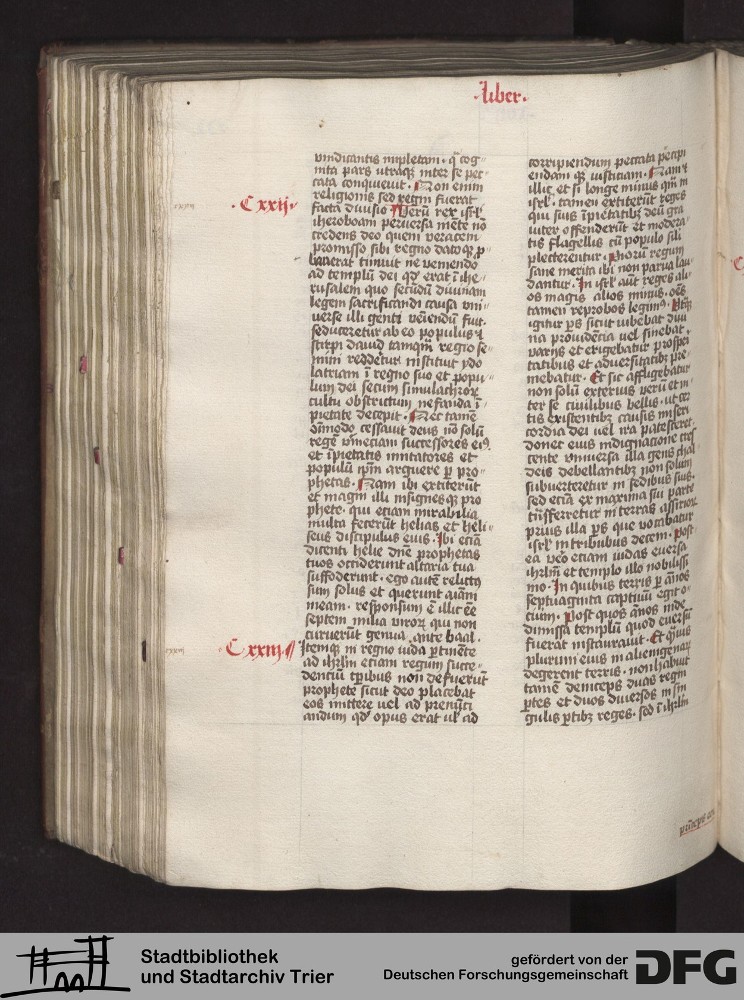 ·liber·
vindicantis impletam · q̃ cog-
nita pars utraq3 inter se pec
cata conquieuit · Non enim
religionis sed regni fuerat
·Cxxij·
facta diuisio Verũ rex isrl̃
iheroboam peruersa mẽte nõ
credens deo quem veracem
promisso sibi regno datoq3 p
bauerat timuit ne veniendo
ad templũ dei qd̾ erat ĩ ihe-
rusalem quo secũdũ diuinam
legem sacrificandi causa vni-
uerse illi genti veniendũ fuit ·
seduceretur ab eo populus ⁊
stirpi dauid tamqm̃ regio se-
mini redderetur instituit ydo
latriam ĩ regno suo et popu-
lum dei secum simulachrorꝝ
cultu obstrictum nefanda ĩ-
pietate decepit · Nec tamẽ
om̃imodo cessauit deus nõ solũ
regẽ vniecium successores ei9
et ĩpietatis imitatores et
populũ ip̃m arguere ꝑ pro-
phetas · Nam ibi extiterũt
et magni illi insignesq3 pro
phete · qui etiam mirabilia
multa fecerũt helias et heli-
seus discipulus eius · Ibi eciã
dicenti helie dñe prophetas
tuos occiderunt altaria tua
suffoderunt · ego autẽ relictus
sum solus et querunt aĩam
meam · responsum ẽ illic ẽe
septem milia virorꝝ qui non
curuerũt genua ante baal ·
·Cxxiij
xxiij
Itemq3 in regno iuda ꝑtinẽte
ad ihrlm̃ etiam regum succe-
denciũ tꝑibus non defuerũt
prophete sicut deo placebat
eos mittere uel ad prenũci
andum qd̾ opus erat ul̾ ad
corripiendum peccata p̃cepi
endam q3 iusticiam · Nam ⁊
illic et si longe minus qm̃ in
isrl̾ · tamen extiterũt reges
qui suis ĩpietatib3 deũ gra
uiter offenderũt et modera-
tis flagellis cũ populo sili
plecterentur · Piorũ regum
sane merita ibi non parua lau-
dantur · In isrl̾ aũt reges ali-
os magis alios minus · oẽs
tamen reprobos legim9 · Vtraq3
igitur ps̃ sicut iubebat diui
na prouidẽcia vel sinebat ·
varijs et erigebatur prosperi
tatibus et aduersitatib3 pre
mebatur · Et sic affligebatur
non solũ exterius verũ et in-
ter se ciuilibus bellis · ut cer
tis existentib3 causis miseri
cordia dei vel ira patesceret
donec eius indignacione cres
cente vniuersa illa gens chal
deis debellantib3 non solum
subuerteretur in sedibus suis ·
sed eciã ex maxima sui parte
trãsferretur in terras assiriorꝝ
prius illa ps̃ que vocabatur
isrl̾ in tribubus decem · Post
ea vero etiam iudas euersa
ihrlm̃ et templo illo nobilissi
mo · In quibus terris ꝑ ãnos
septuaginta captiuũ egit o-
cium · Post quos ãnos inde
dimissa templũ quod euersũ
fuerat instaurauit · Et q̃uis
plurimi eius in alienigenarꝝ
degerent terris · non habuit
tamẽ deniceps duas regni
ꝑtes et duos diuersos in sin
gulis ꝑtib3 reges · sed ĩ ihrlm̃
princeps
Stadtbibliothek
und Stadtarchiv Trier
gefördert von der
Deutschen Forschungsgemeinschaft
DFG